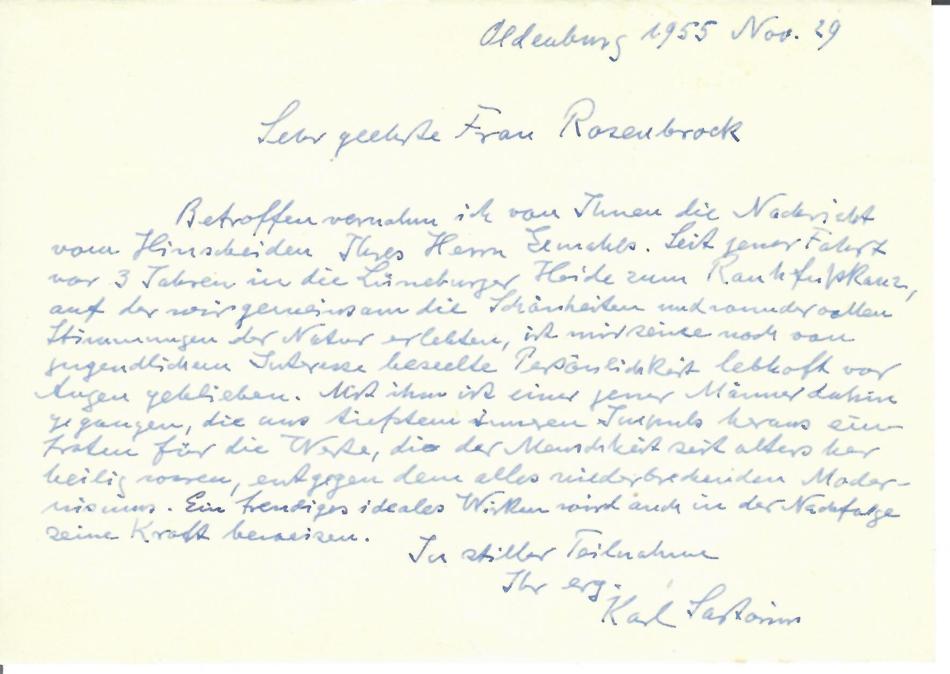 Oldenburg 1955 Nov. 29
Sehr geehrte Frau Rosenbrock
Betroffen vernahm ich von Ihnen die Nachricht
vom Hinscheiden Ihres Herrn Gemahls. Seit jener Fahrt
vor 3 Jahren in die Lüneburger Heide zum Rauhfußkauz,
auf der wir gemeinsam die Schönheiten und wundervollen
Stimmungen der Natur erlebten, ist mir seine noch von
jugendlichem Interesse beseelte Persönlichkeit lebhaft vor
Augen geblieben. Mit ihm ist einer jener Männer dahin
gegangen, die aus tiefstem inneren Impuls heraus ein-
traten für die Werte, die der Menschheit seit alters her
heilig waren, entgegen dem alles niederbrechenden Moder-
nismus. Ein ideales Wirken wird auch in der Nachfolge
seine Kraft beweisen.
In stiller Teilnahme
Ihr erg.
Karl Sartorius